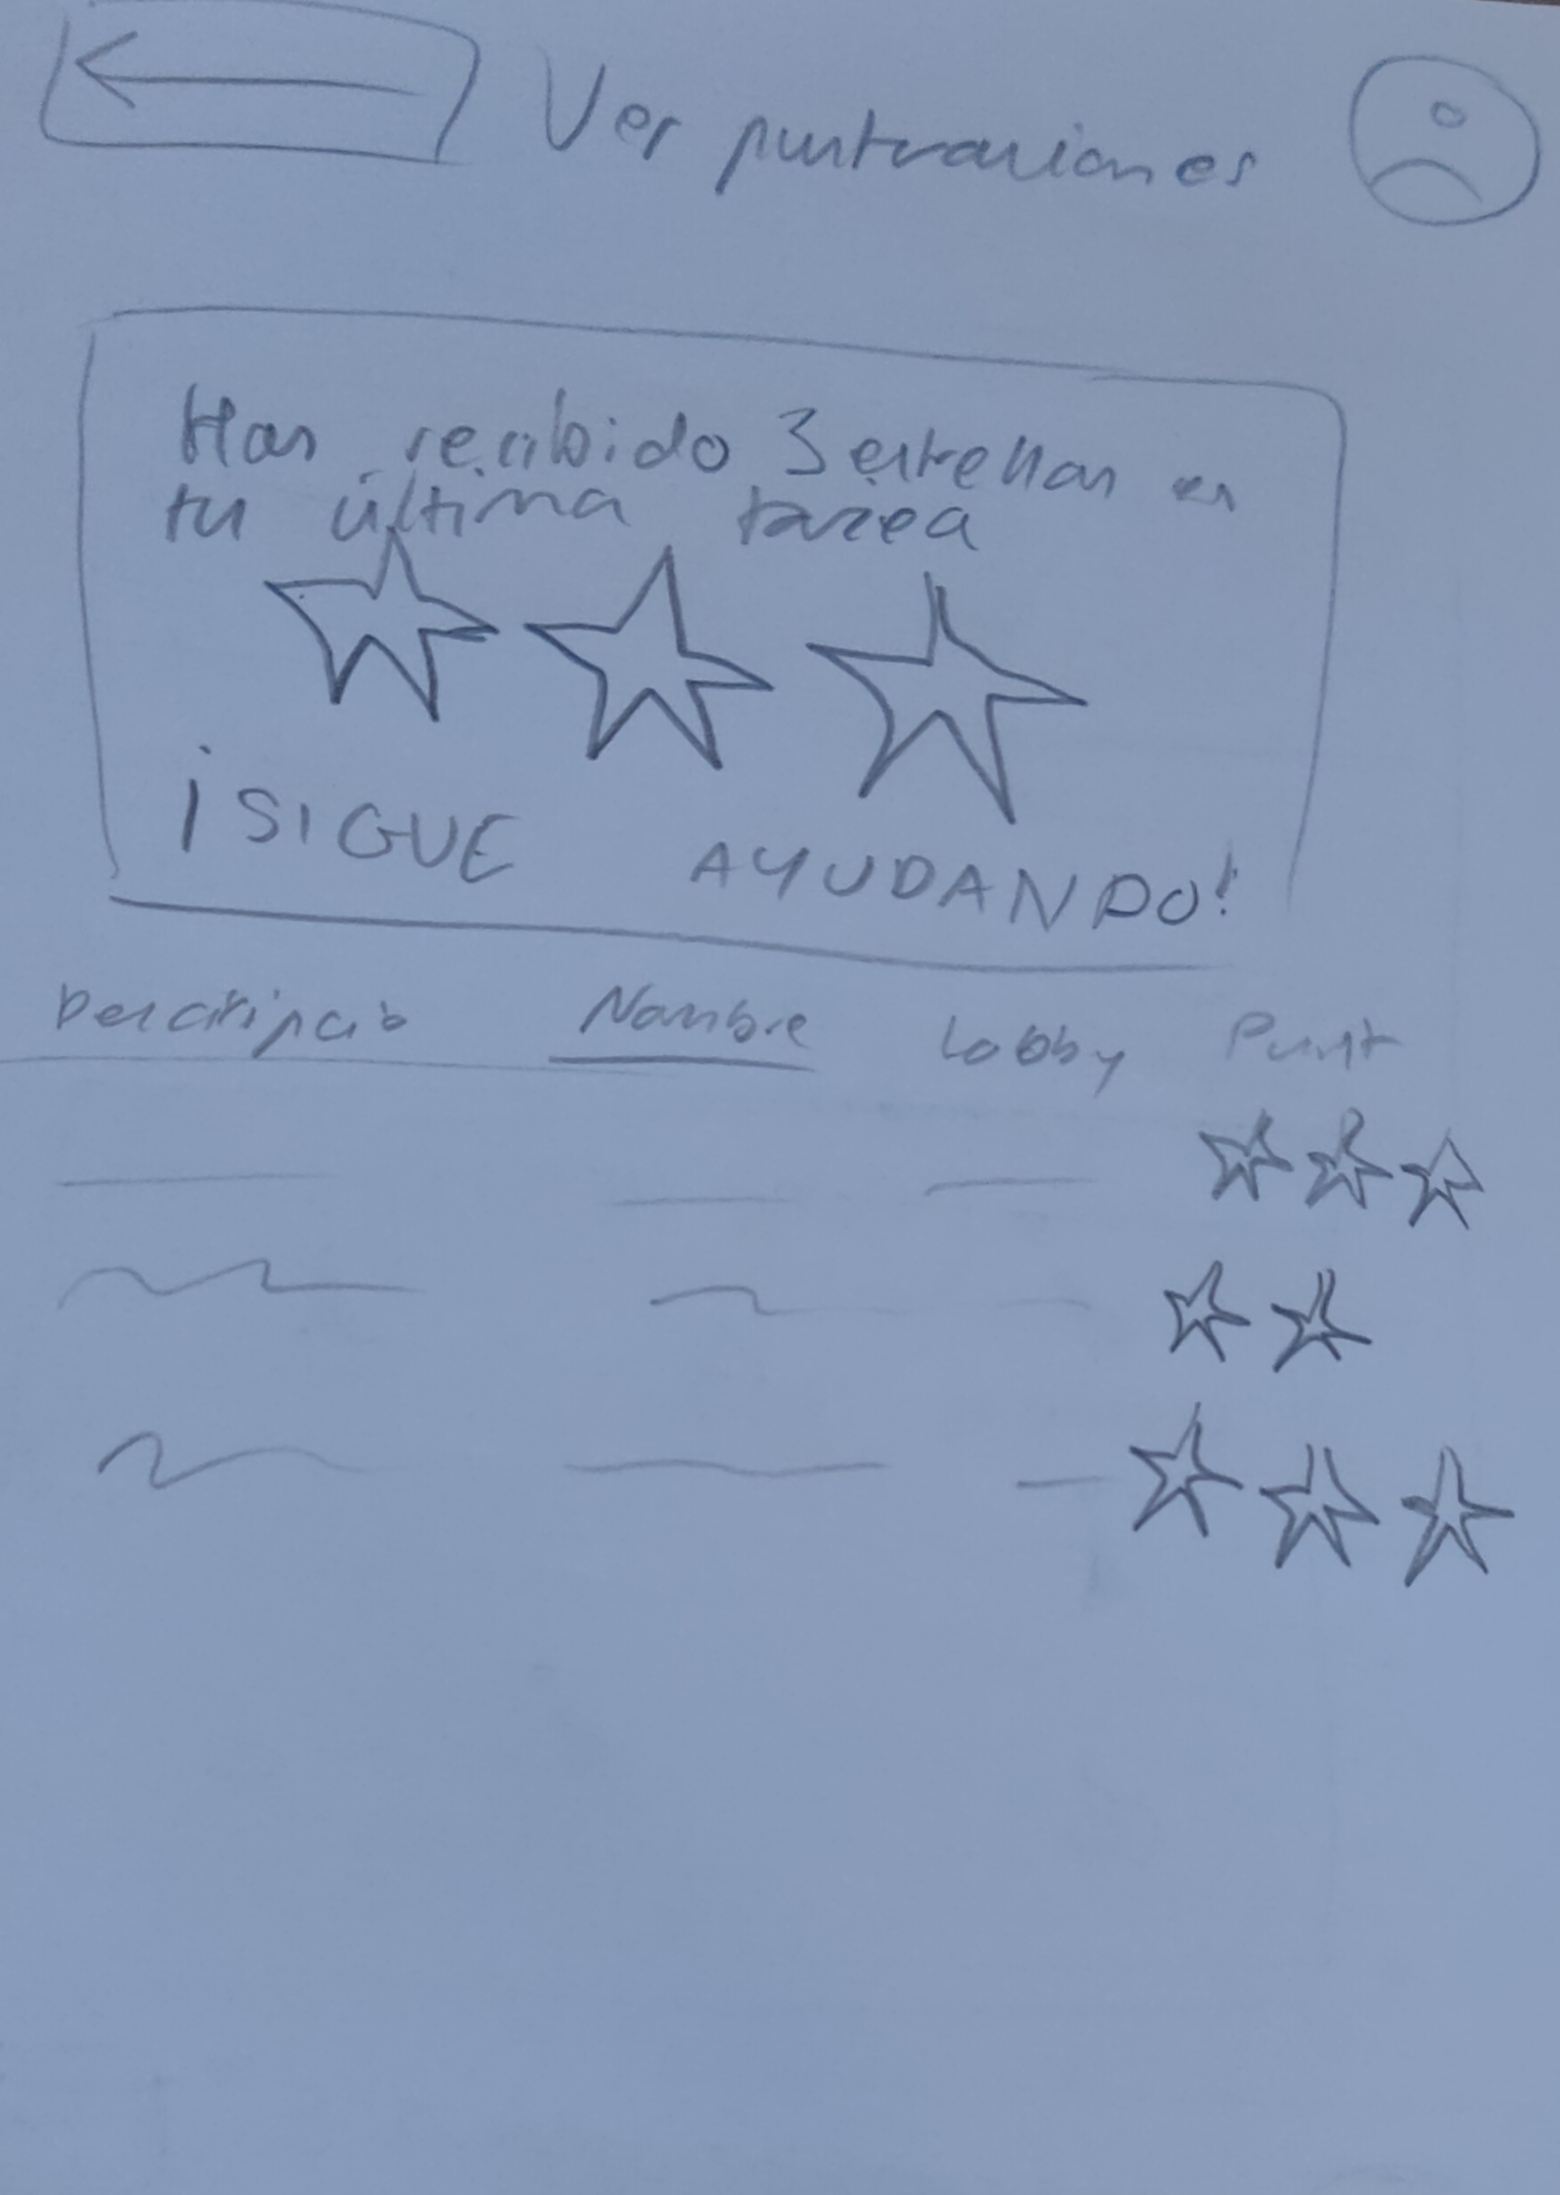 Ver puntuaciones
Has recibido 3 estrellas en
tu última tarea
¡SIGUE AYUDANDO!
Descripció Nombre Lobby Punt